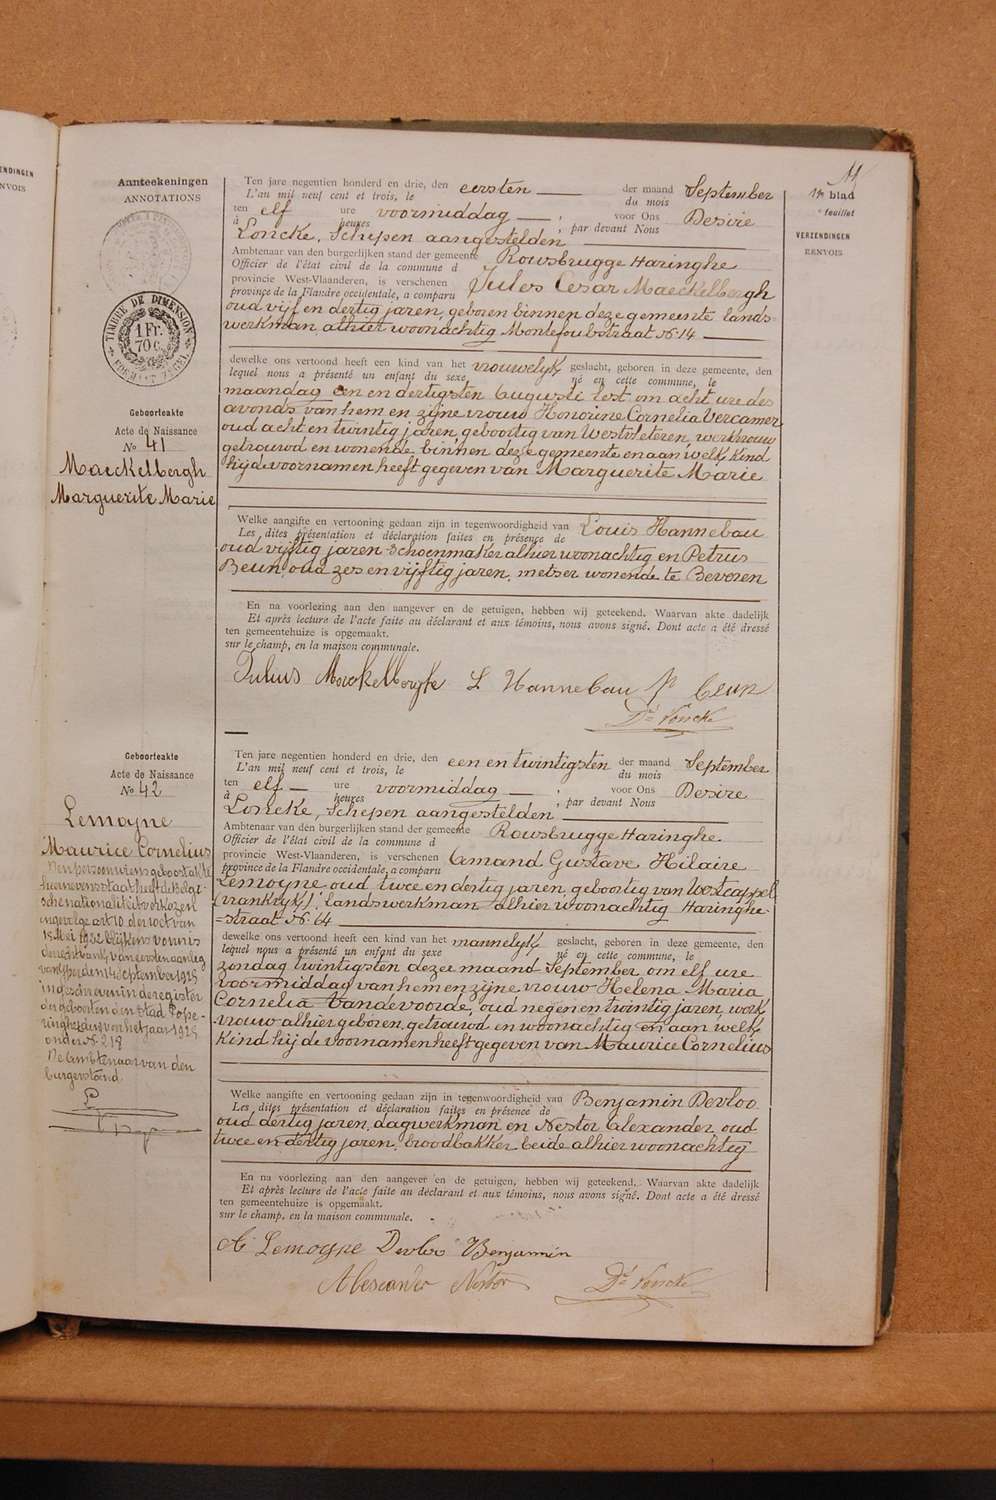 ENDINGEN
NVOIS
Aanteekeningen
ANNOTATIONS
TIMBRE DE DIMENSION
1 Fr.
70 c.
Geboorteakte
Acte de Naissance
No 41
Maeckelbergh
Marguerite Marie
Ten jare negentien honderd en drie, den eersten der maand September
L'an mil neuf cent et trois, le du mois
ten elf ure voormiddag ; voor Ons Desiré
à heures , par devant Nous
Loncke, Schepen aangestelden
Ambtenaar van den burgerlijken stand der gemeente Rousbrugge Haringhe
Officier de l'état civil de la commune d
provincie West-Vlaanderen, is verschenen Jules Cesar Maeckelbergh
province de la Flandre occidentale, a comparu
oud vijf en dertig jaren, geboren binnen deze gemeente lands-
werkman alhier woonachtig Montefoubstraat No 14
dewelke ons vertoond heeft een kind van het vrouwelijk geslacht, geboren in deze gemeente, den
lequel nous a présenté un enfant du sexe né en cette commune, le
maandag een en dertigsten Augusti lest om acht ure des
avonds van hem en zijne vrouw Honorine Cornelia Vercamer
oud acht en twintig jaren, geboortig van Westvleteren, werkvrouw
getrouwd en wonende binnen deze gemeente en aan welk kind
hij de voornamen heeft gegeven van Marguerite Marie
Welke aangifte en vertooning gedaan zijn in tegenwoordigheid van Louis Hannebau
Les dites présentation et déclaration faites en présence de
oud vijftig jaren schoenmaker alhier woonachtig en Petrus
Beun, oud zes en vijftig jaren, metser wonende te Beveren
En na voorlezing aan den aangever en de getuigen, hebben wij geteekend. Waarvan akte dadelijk
Et après lecture de l'acte faite au déclarant et aux témoins, nous avons signé. Dont acte a été dressé
ten gemeentehuize is opgemaakt.
sur le champ, en la maison communale.
Julius Maeckelbergh L Hannebau P Beun
Dé Loncke
Geboorteakte
Acte de Naissance
No 42
Lemoyne
Maurice Cornelius
Den persoon wiens geboortakte
hiernevens staat heeft de Belgi-
sche nationaliteit verkozen
ingevolge art 10 der wet van
15 Mei 1922 blijkens vonnis
der rechtbank van eersten aanleg
van Yperden 14 September 1925
ingeschreven in de register
der geboorten der stad Pope-
ringhe dus van het jaar 1925
onder No 218
De Ambtenaar van den
burgerstand
Ten jare negentien honderd en drie, den een en twintigsten der maand September
L'an mil neuf cent et trois, le du mois
ten elf ure voormiddag ; voor Ons Desiré
à heures , par devant Nous
Loncke, Schepen aangestelden
Ambtenaar van den burgerlijken stand der gemeente Rousbrugge Haringhe
Officier de l'état civil de la commune d
provincie West-Vlaanderen, is verschenen Amand Gustave Hilaire
province de la Flandre occidentale, a comparu
Lemoyne oud twee en dertig jaren, geboortig van Westcappel
(Frankrijk), landswerkman alhier woonachtig Haringhe
=straat No 64
dewelke ons vertoond heeft een kind van het mannelijk geslacht, geboren in deze gemeente, den
lequel nous a présenté un enfant du sexe né en cette commune, le
zondag twintigsten dezer maand September om elf ure
voormiddag van hem en zijne vrouw Helena Maria
Cornelia Vandevoorde, oud negen en twintig jaren, werk
vrouw alhier geboren, getrouwd en woonachtig en aan welk
kind hij de voornamen heeft gegeven van Maurice Cornelius
Welke aangifte en vertooning gedaan zijn in tegenwoordigheid van Benjamin Devloo
Les dites présentation et déclaration faites en présence de
oud dertig jaren, dagwerkman en Nestor Alexander, oud
twee en dertig jaren, broodbakker beide alhier woonachtig
En na voorlezing aan den aangever en de getuigen, hebben wij geteekend. Waarvan akte dadelijk
Et après lecture de l'acte faite au déclarant et aux témoins, nous avons signé. Dont acte a été dressé
ten gemeentehuize is opgemaakt.
sur le champ, en la maison communale.
A Lemoyne Devloo Benjamin
Alexander Nestor Dé Loncke
11
11e blad
feuillet
VERZENDINGEN
RENVOIS